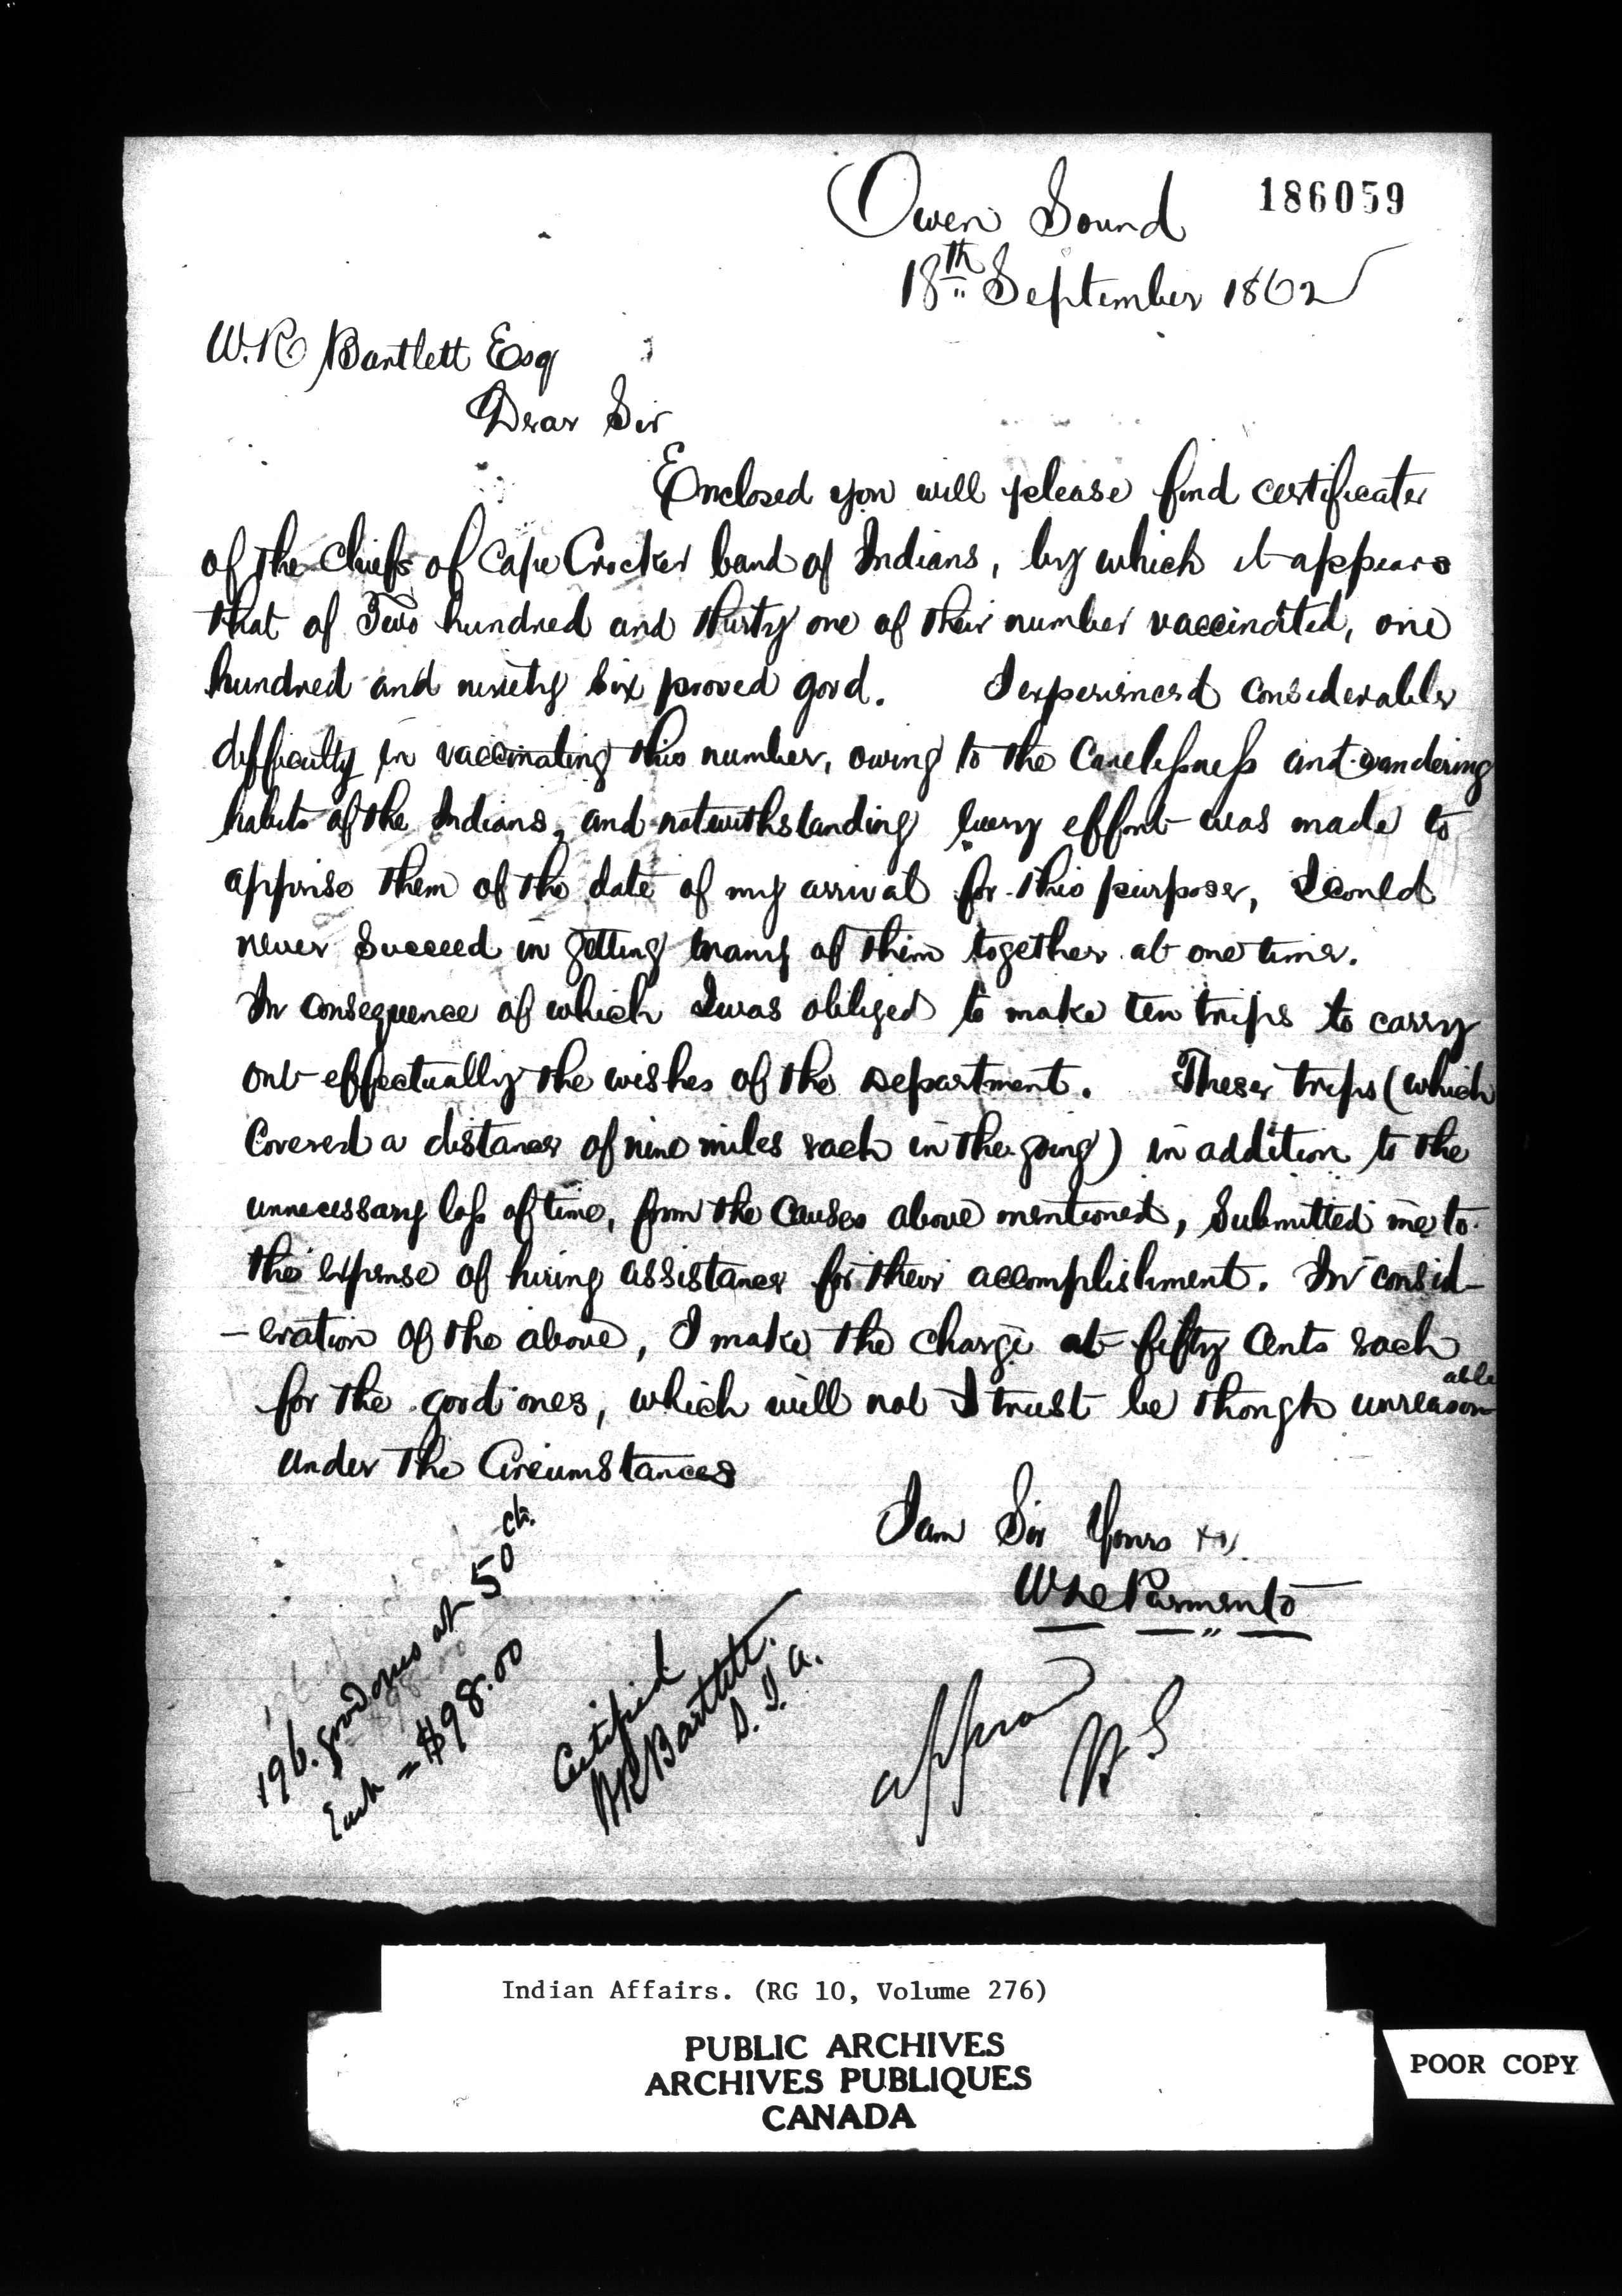 186059
Owen Sound
18th September 1862
W. R Bartlett Esq
Dear Sir
Enclosed you will please find certificate
of the Chiefs of Cape Crocker band of Indians, by which it appears
that of Two hundred and thirty one of their number vaccinated, one
hundred and ninety six proved good. I experienced considerable
difficulty in vaccinating this number, owing to the Carelessness and wandering
habits of the Indians, and notwithstanding every effort was made to
apprise them of the date of my arrival for this purpose, I could
never Succeed in getting many of them together at one time.
In consequence of which I was obliged to make ten trips to carry
out effectually the wishes of the Department. These trips (which
Covered a distance of nine miles each in the going) in addition to the
unnecessary loss of time, from the Causes above mentioned, Submitted me to
the expense of hiring assistance for their accomplishment. In consid-
-eration of the above, I make the charge at fifty Cents each
for the good ones, which will not I trust be though unreasonable
under the Circumstances
I am Sir Yours
196. good ones at 50 cts.
Each = $98.00
Certified
WRBartlett.
S. I. A.
Indian Affairs. (RG 10, Volume 276)
PUBLIC ARCHIVES
ARCHIVES PUBLIQUES
CANADA
POOR COPY